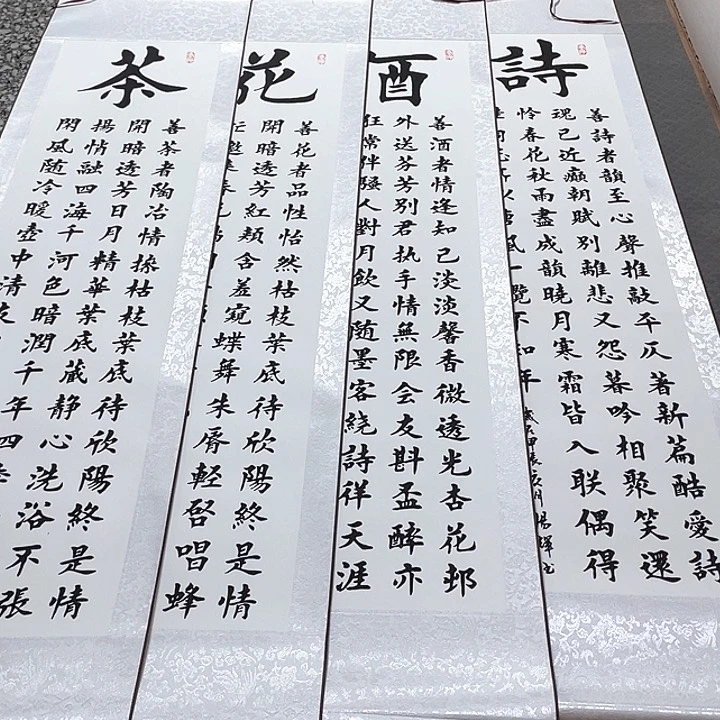 詩
善詩者韻至心聲推敲平仄著新篇酷愛詩
瑰已近癲朝賦別離悲又怨暮吟相聚笑還
怜春花秋雨盡成韻曉月寒霜皆入联偶得
風一覽不知年
酒
善酒者情逢知己淡淡馨香微透光杏花邨
外送芬芳別君执手情無限会友斟盃醉亦
狂常伴騷人對月飲又随墨客繞詩徉天涯
花
善花者品性怡然枯枝葉底待欣陽終是情
開暗透芳紅頰含羞窺蝶舞朱脣輕啓唱蜂
茶
善茶者陶冶情操枯枝葉底待欣陽終是情
開暗透芳日月精華葉底蔵静心洗浴不張
揚帖融四海千河色暗潤千年四
閑風随冷暖壺中清